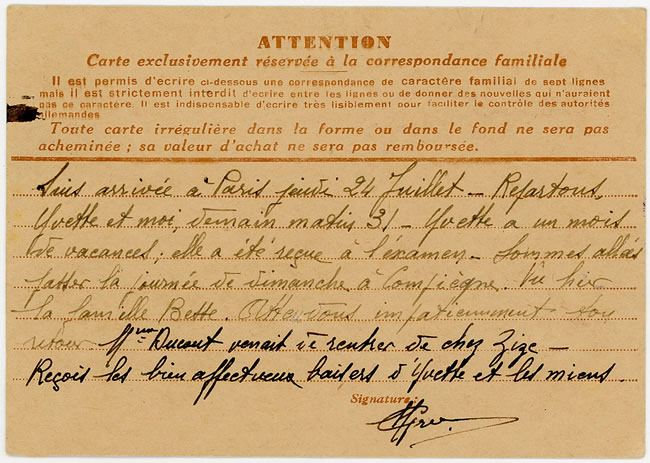 ATTENTION
Carte exclusivement réservée à la correspondance familiale
Il est permis d'ecrire ci-dessous une correspondance de caractère familial de sept lignes
mais il est strictement interdit d'ecrire entre les lignes ou de donner des nouvelles qui n'auraient
pas ce caractère. Il est indispensable d'ecrire très lisiblement pour faciliter le contrôle des autorités
allemandes
Toute carte irrégulière dans la forme ou dans le fond ne sera pas
acheminée ; sa valeur d'achat ne sera pas remboursée.
Suis arrivée à Paris jeudi 24 Juillet - Repartons,
Yvette et moi, demain matin 31 - Yvette a un mois
de vacances, elle a été reçue à l'éxamen - Sommes allés
passer la journée de dimanche à Compiègne. Vu hier
la famille Bette. Attendons impatiemment ton
retour Mme Ducout venait de rentrer de chez Zize -
Reçois les bien affectueux baisers d'Yvette et les miens.
Signature :